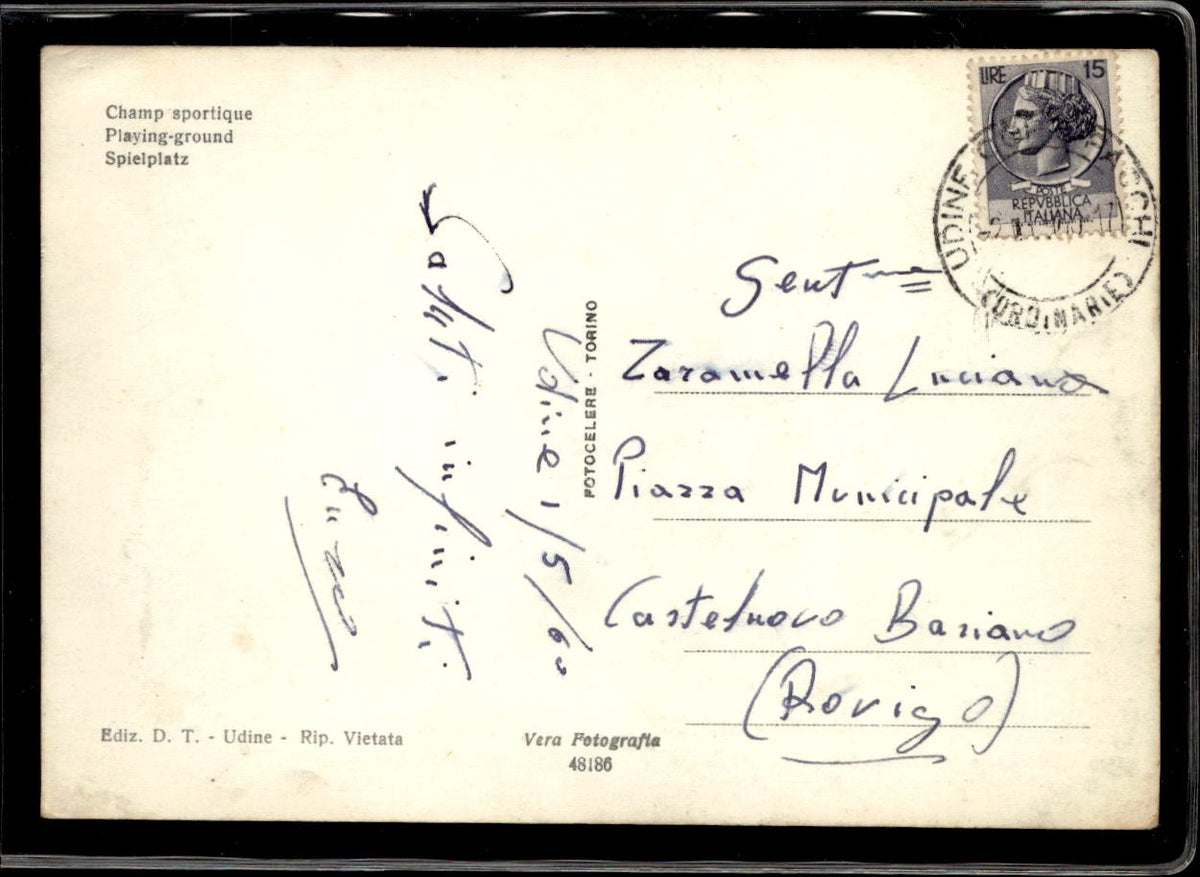 Champ sportique
Playing-ground
Spielplatz
LIRE 15
POSTE
REPVBBLICA
ITALIANA
UDINE
(ORDINARIE)
Udine 1/5/60
Saluti infiniti
Enzo
FOTOCELERE - TORINO
Gent.ma
Zaramella Luciana
Piazza Municipale
Castelnovo Bariano
(Rovigo)
Ediz. D. T. - Udine - Rip. Vietata
Vera Fotografia
48186